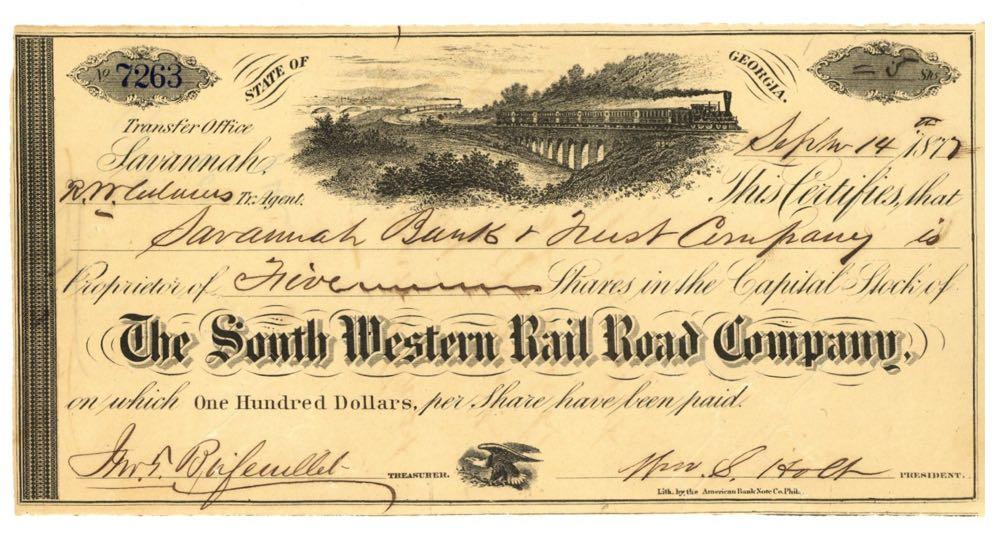 No 7263
STATE OF GEORGIA.
= 5 Shs
Transfer Office
Savannah,
Tr. Agent.
Septr 14th 1877
This Certifies, that
Savannah Bank & Trust Company is
Proprietor of Five Shares in the Capital Stock of
The South Western Rail Road Company,
on which One Hundred Dollars, per Share have been paid.
Jno. T. Boifeuillet TREASURER. Wm. S. Holt PRESIDENT.
Lith. by the American Bank Note Co. Phila.